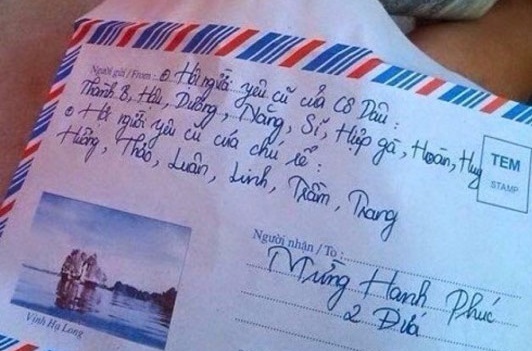 Người gửi / From : Hội người yêu cũ của Cô Dâu :
Thành B, Hậu, Dưỡng, Năng, Sĩ, Hiệp gà, Hoàn, Huy
Hội người yêu cũ của chú rể :
Hường, Thảo, Luân, Linh, Trầm, Trang
TEM
STAMP
Người nhận / To :
Mừng Hạnh Phúc
2 Đứa
Vịnh Hạ Long